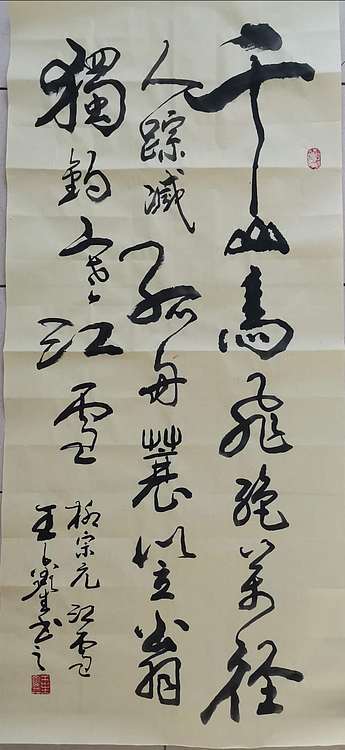 千山鳥飛絶萬径
人踪滅孤舟蓑笠翁
獨釣寒江雪
柳宗元江雪
王